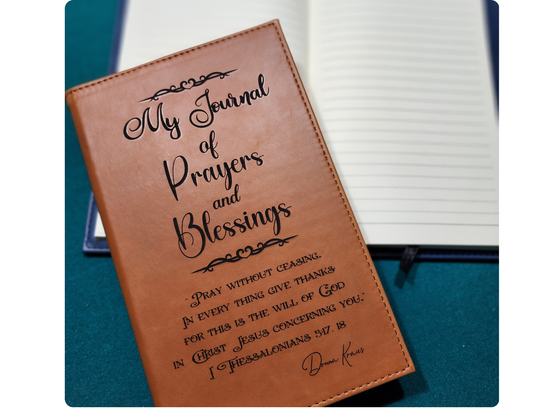 My Journal
of
Prayers
and
Blessings
"Pray without ceasing.
In every thing give thanks
for this is the will of God
in Christ Jesus concerning you."
I Thessalonians 5:17, 18
Donna Kraus